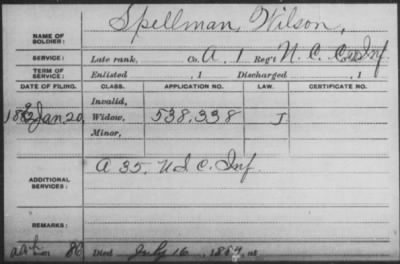 NAME OF SOLDIER: Spellman, Wilson,
SERVICE: Late rank, Co. A, 1 Reg't N. C. Col Inf
TERM OF SERVICE: Enlisted , 1 Discharged , 1
DATE OF FILING. CLASS. APPLICATION NO. LAW. CERTIFICATE NO.
Invalid,
Jan. 20 Widow, 538.338 J
Minor,
ADDITIONAL SERVICES: A 35. U S C. Inf.
REMARKS:
Died July 16, 186 , at